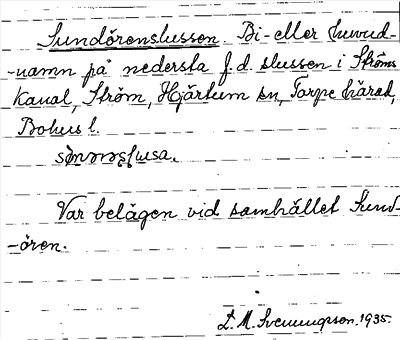 Sundörenslussen. Bi- eller huvud-
-namn på nedersta f.d. slussen i Ströms
Kanal, Ström, Hjärtum sn, Torpe härad,
Bohus l.
Var belägen vid samhället Sund-
-ören.
1935.